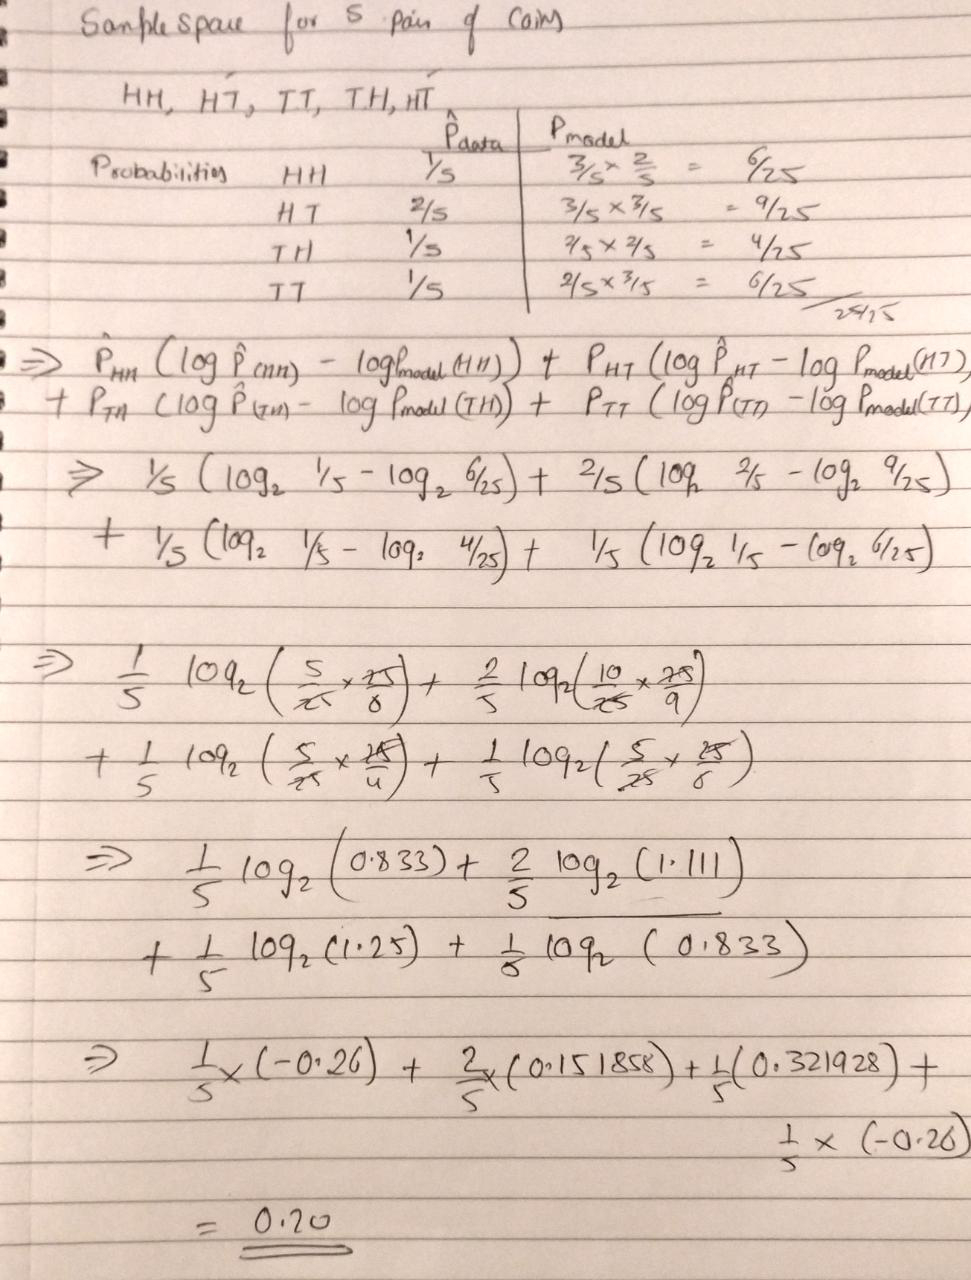 Sample space for 5 pair of coins
HH, HT, TT, TH, HT
P̂data | Pmodel
Probabilities HH 1/5 | 3/5 × 2/5 = 6/25
HT 2/5 | 3/5 × 3/5 = 9/25
TH 1/5 | 2/5 × 2/5 = 4/25
TT 1/5 | 2/5 × 3/5 = 6/25
25/25
⇒ P̂HH (log P̂(HH) - log Pmodel (HH)) + PHT (log P̂HT - log Pmodel (HT))
+ PTH (log P̂(TH) - log Pmodel (TH)) + PTT (log P̂(TT) - log Pmodel (TT))
⇒ 1/5 (log₂ 1/5 - log₂ 6/25) + 2/5 (log₂ 2/5 - log₂ 9/25)
+ 1/5 (log₂ 1/5 - log₂ 4/25) + 1/5 (log₂ 1/5 - log₂ 6/25)
⇒ 1/5 log₂ (5/25 × 25/6) + 2/5 log₂ (10/25 × 25/9)
+ 1/5 log₂ (5/25 × 25/4) + 1/5 log₂ (5/25 × 25/6)
⇒ 1/5 log₂ (0.833) + 2/5 log₂ (1.111)
+ 1/5 log₂ (1.25) + 1/5 log₂ (0.833)
⇒ 1/5 × (-0.26) + 2/5 × (0.151858) + 1/5 (0.321928) +
1/5 × (-0.26)
= 0.20